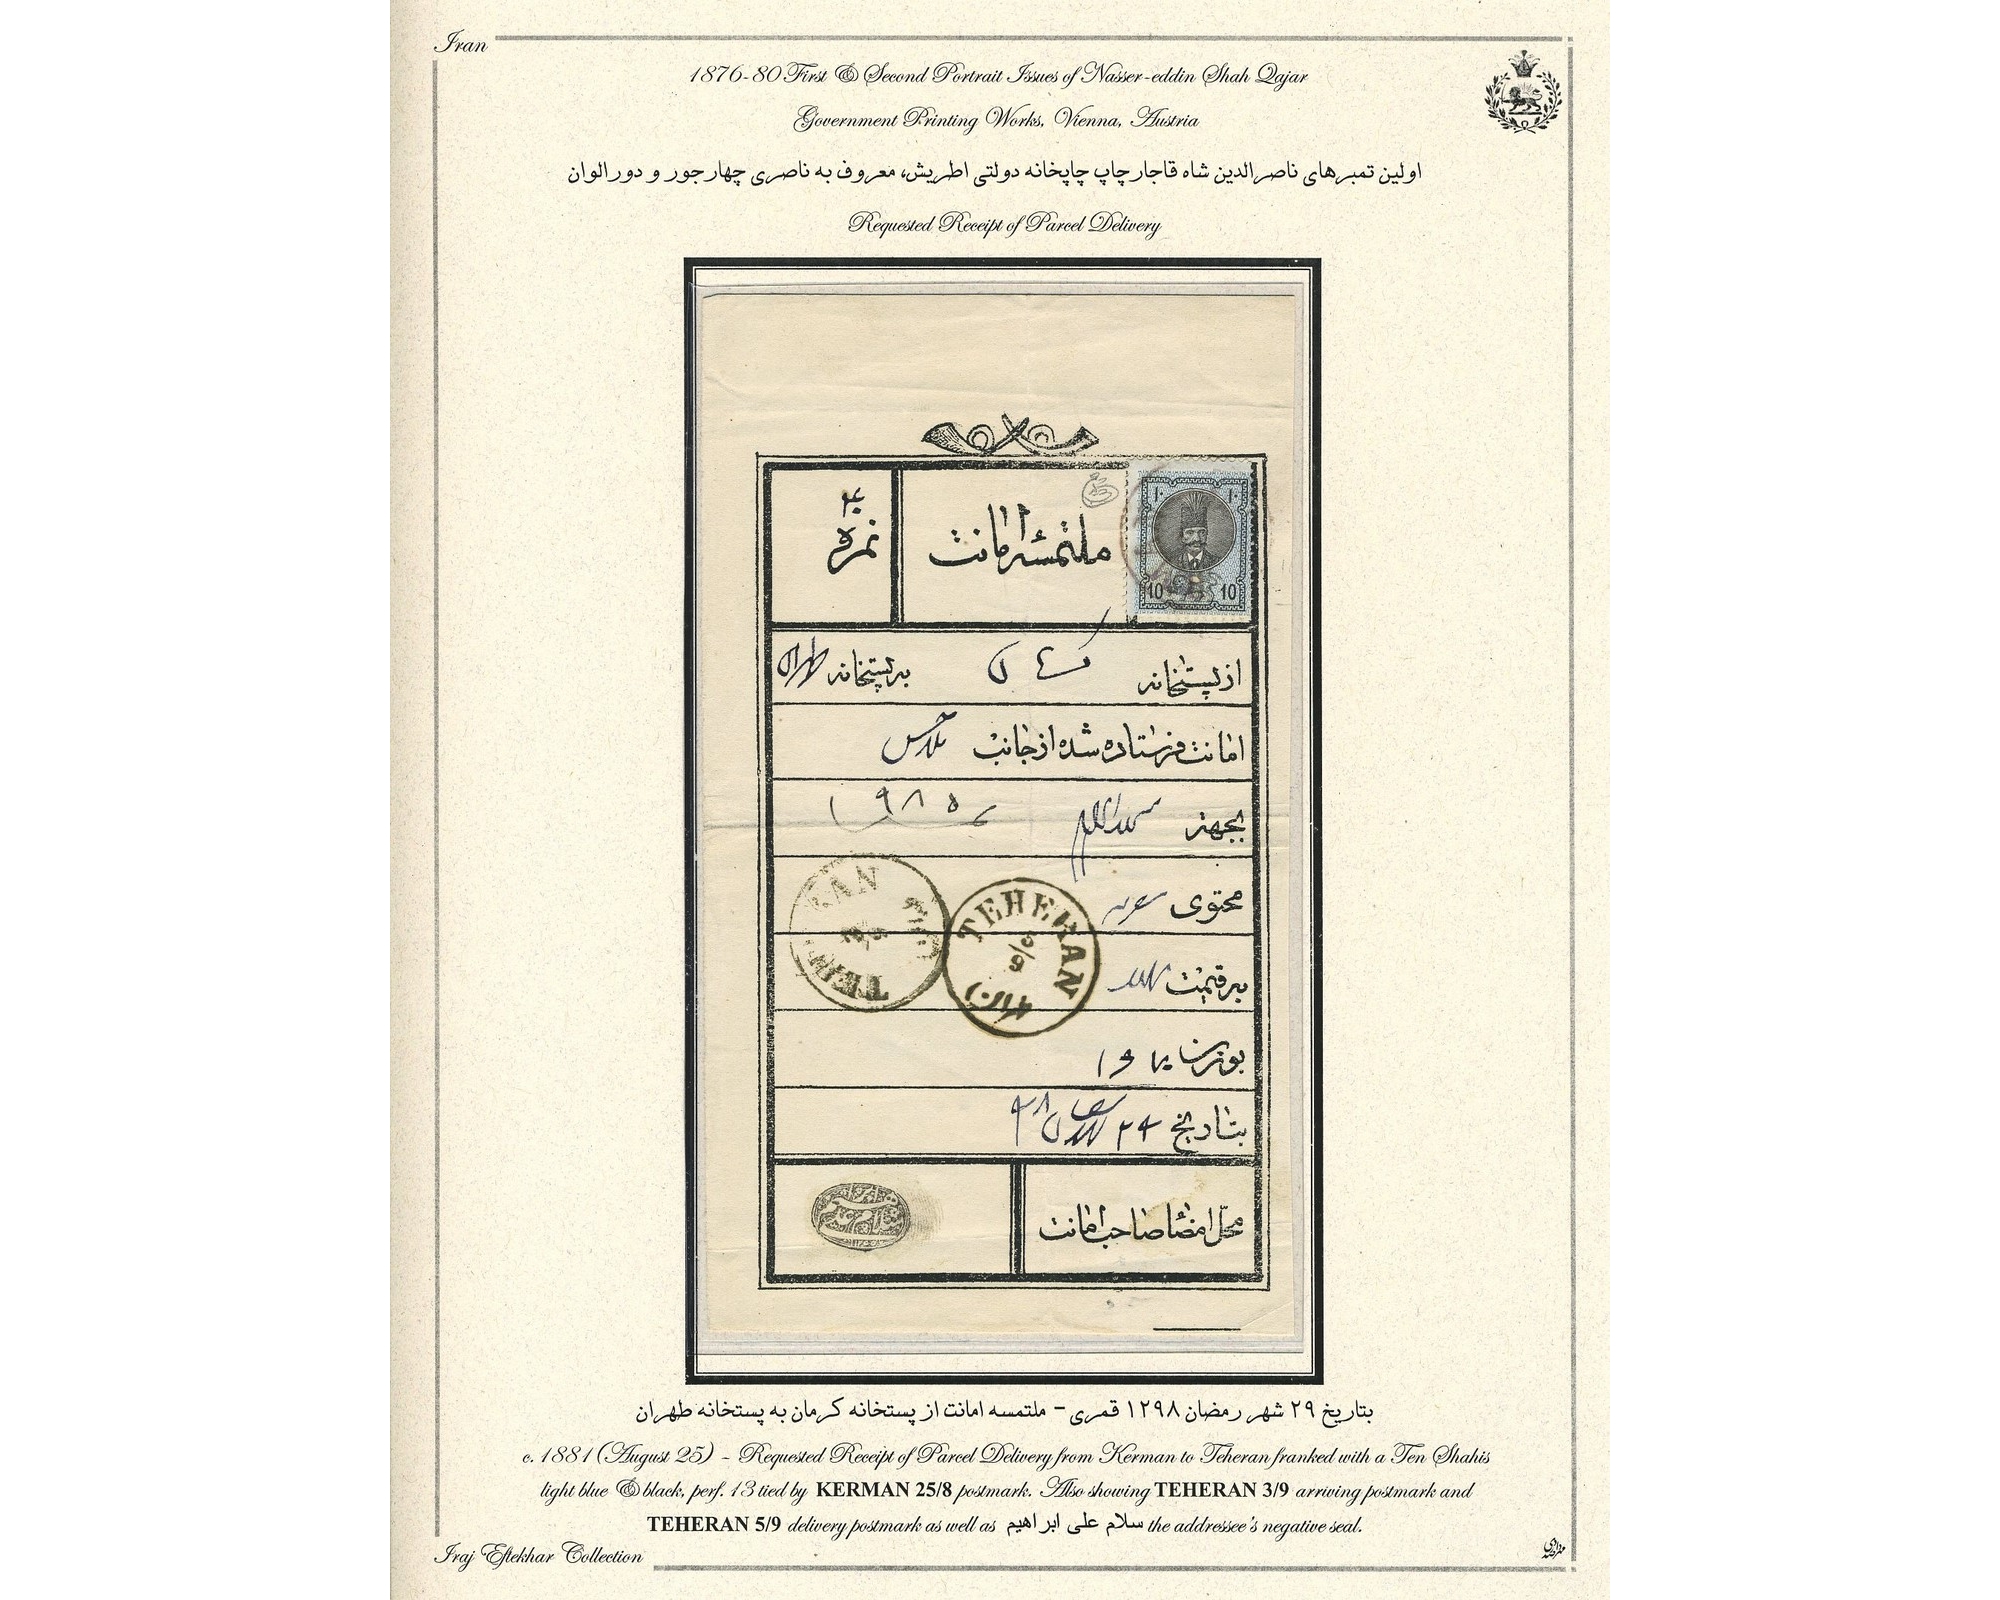 Iran
1876-80 First & Second Portrait Issues of Nasser-eddin Shah Qajar
Government Printing Works, Vienna, Austria
اولین تمبرهای ناصرالدین شاه قاجار چاپ چاپخانه دولتی اطریش، معروف به ناصری چهارجور و دورالوان
Requested Receipt of Parcel Delivery
نمره
ملتمسه امانت
۱۰ ۱۰
10 10
از پستخانه کرمان به پستخانه طهران
امانت فرستاده شده از جانب
بجهت
محتوی
TEHERAN
TEHERAN
5/9
طهران
بر قیمت
بوزن
بتاریخ ۲۹ رمضان ۹۸
محل امضا صاحب امانت
بتاریخ ۲۹ شهر رمضان ۱۲۹۸ قمری - ملتمسه امانت از پستخانه کرمان به پستخانه طهران
c. 1881 (August 25) - Requested Receipt of Parcel Delivery from Kerman to Teheran franked with a Ten Shahis
light blue & black, perf. 13 tied by KERMAN 25/8 postmark. Also showing TEHERAN 3/9 arriving postmark and
TEHERAN 5/9 delivery postmark as well as سلام علی ابراهیم the addressee's negative seal.
Iraj Eftekhar Collection